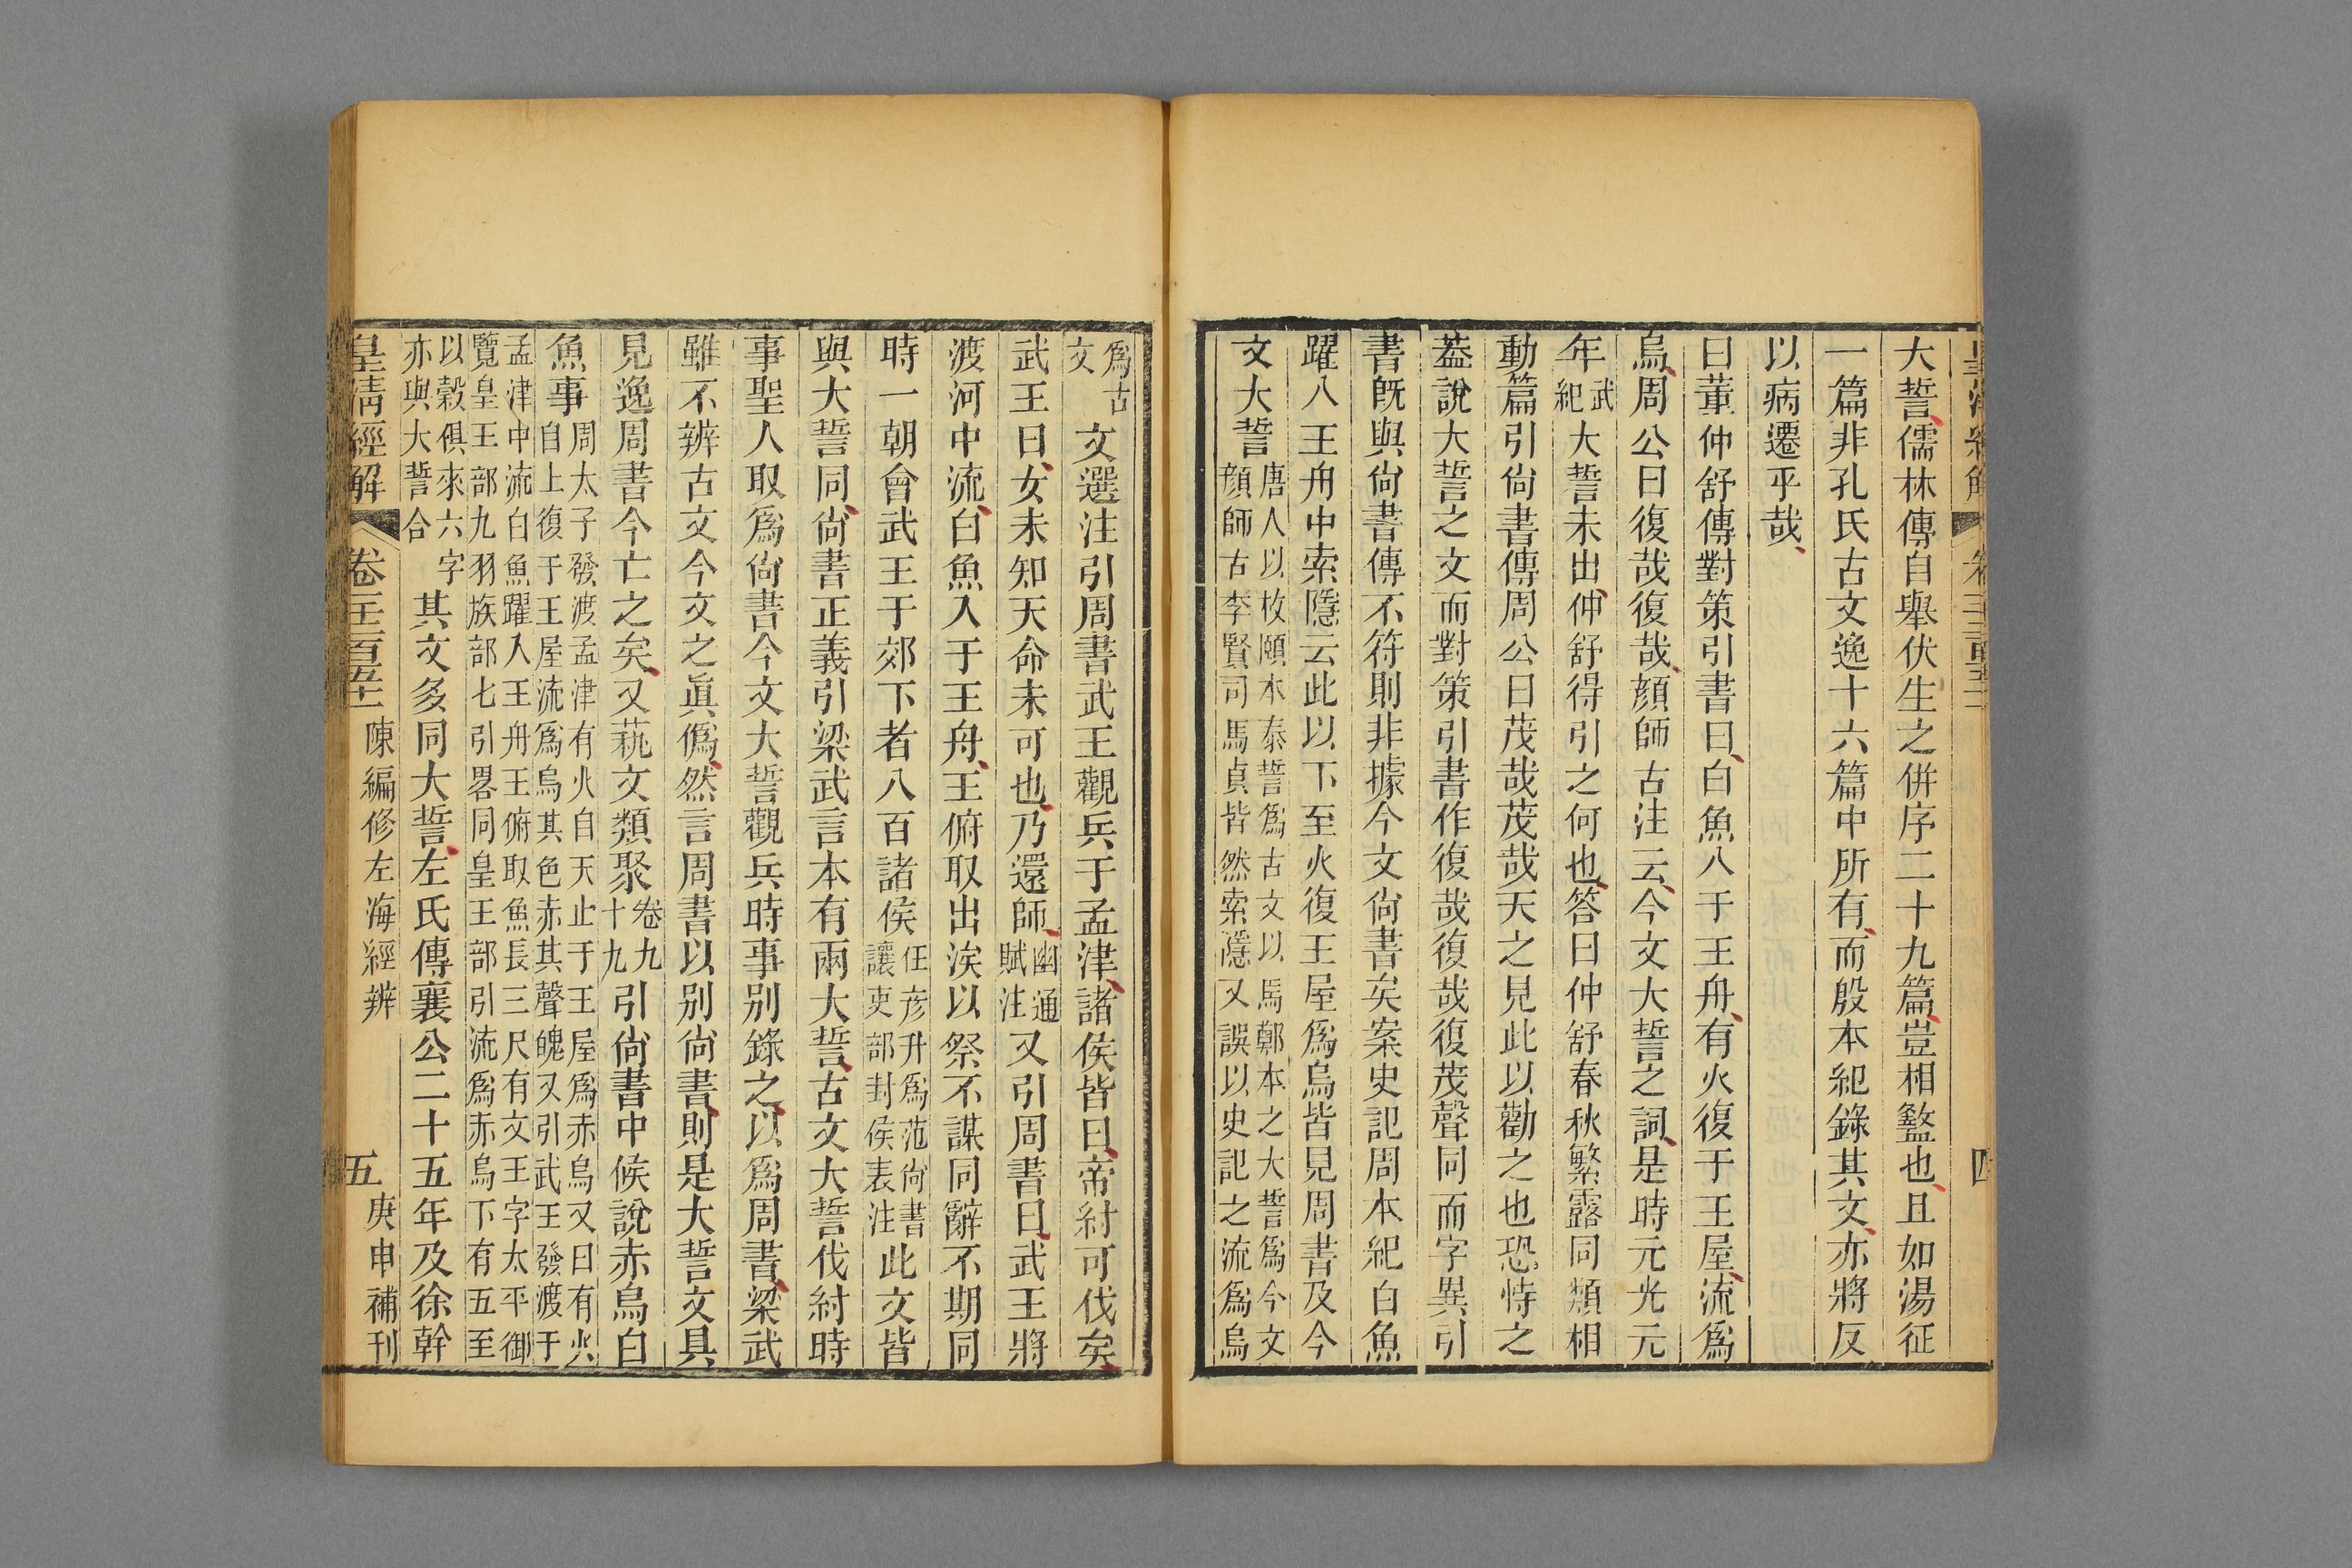 大誓儒林傳自舉伏生之併序二十九篇豈相盭也且如湯征
一篇非孔氏古文逸十六篇中所有而殷本紀錄其文亦將反
以病遷乎哉
曰董仲舒傳對策引書曰白魚入于王舟有火復于王屋流爲
烏周公曰復哉復哉顔師古注云今文大誓之詞是時元光元
年武紀大誓未出仲舒得引之何也答曰仲舒春秋繁露同類相
動篇引尙書傳周公曰茂哉茂哉天之見此以勸之也恐恃之
葢說大誓之文而對策引書作復哉復哉復茂聲同而字異引
書旣與尙書傳不符則非據今文尙書矣案史記周本紀白魚
躍入王舟中索隱云此以下至火復王屋爲烏皆見周書及今
文大誓唐人以枚頤本泰誓爲古文以馬鄭本之大誓爲今文
顔師古李賢司馬貞皆然索隱又誤以史記之流爲烏
爲古
文
文選注引周書武王觀兵于孟津諸侯皆曰帝紂可伐矣
武王曰女未知天命未可也乃還師幽通賦注又引周書曰武王將
渡河中流白魚入于王舟王俯取出涘以祭不謀同辭不期同
時一朝會武王于郊下者八百諸侯任彦升爲范尙書讓吏部封侯表注此文皆
與大誓同尙書正義引梁武言本有兩大誓古文大誓伐紂時
事聖人取爲尙書今文大誓觀兵時事别錄之以爲周書梁武
雖不辨古文今文之眞僞然言周書以别尙書則是大誓文具
見逸周書今亡之矣又蓺文類聚卷九十九引尙書中候說赤烏白
魚事周太子發渡孟津有火自天止于王屋爲赤烏又曰有火
自上復于王屋流爲烏其色赤其聲魄又引武王發渡于
孟津中流白魚躍入王舟王俯取魚長三尺有文王字太平御
覽皇王部九羽族部七引畧同皇王部引流爲赤烏下有五至
以穀俱來六字
亦與大誓合
其文多同大誓左氏傳襄公二十五年及徐幹
皇淸經解
陳編修左海經辨
五
庚申補刊
四